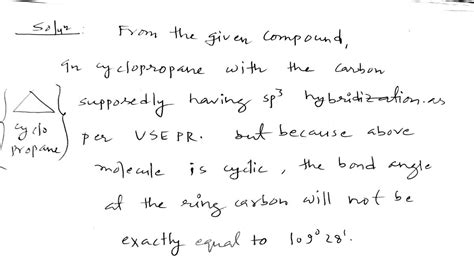 Solun: From the given compound,
in cyclopropane with the carbon
supposedly having sp³ hybridization. as
per VSEPR. but because above
molecule is cyclic, the bond angle
at the ring carbon will not be
exactly equal to 109°28'.
cyclo
propane